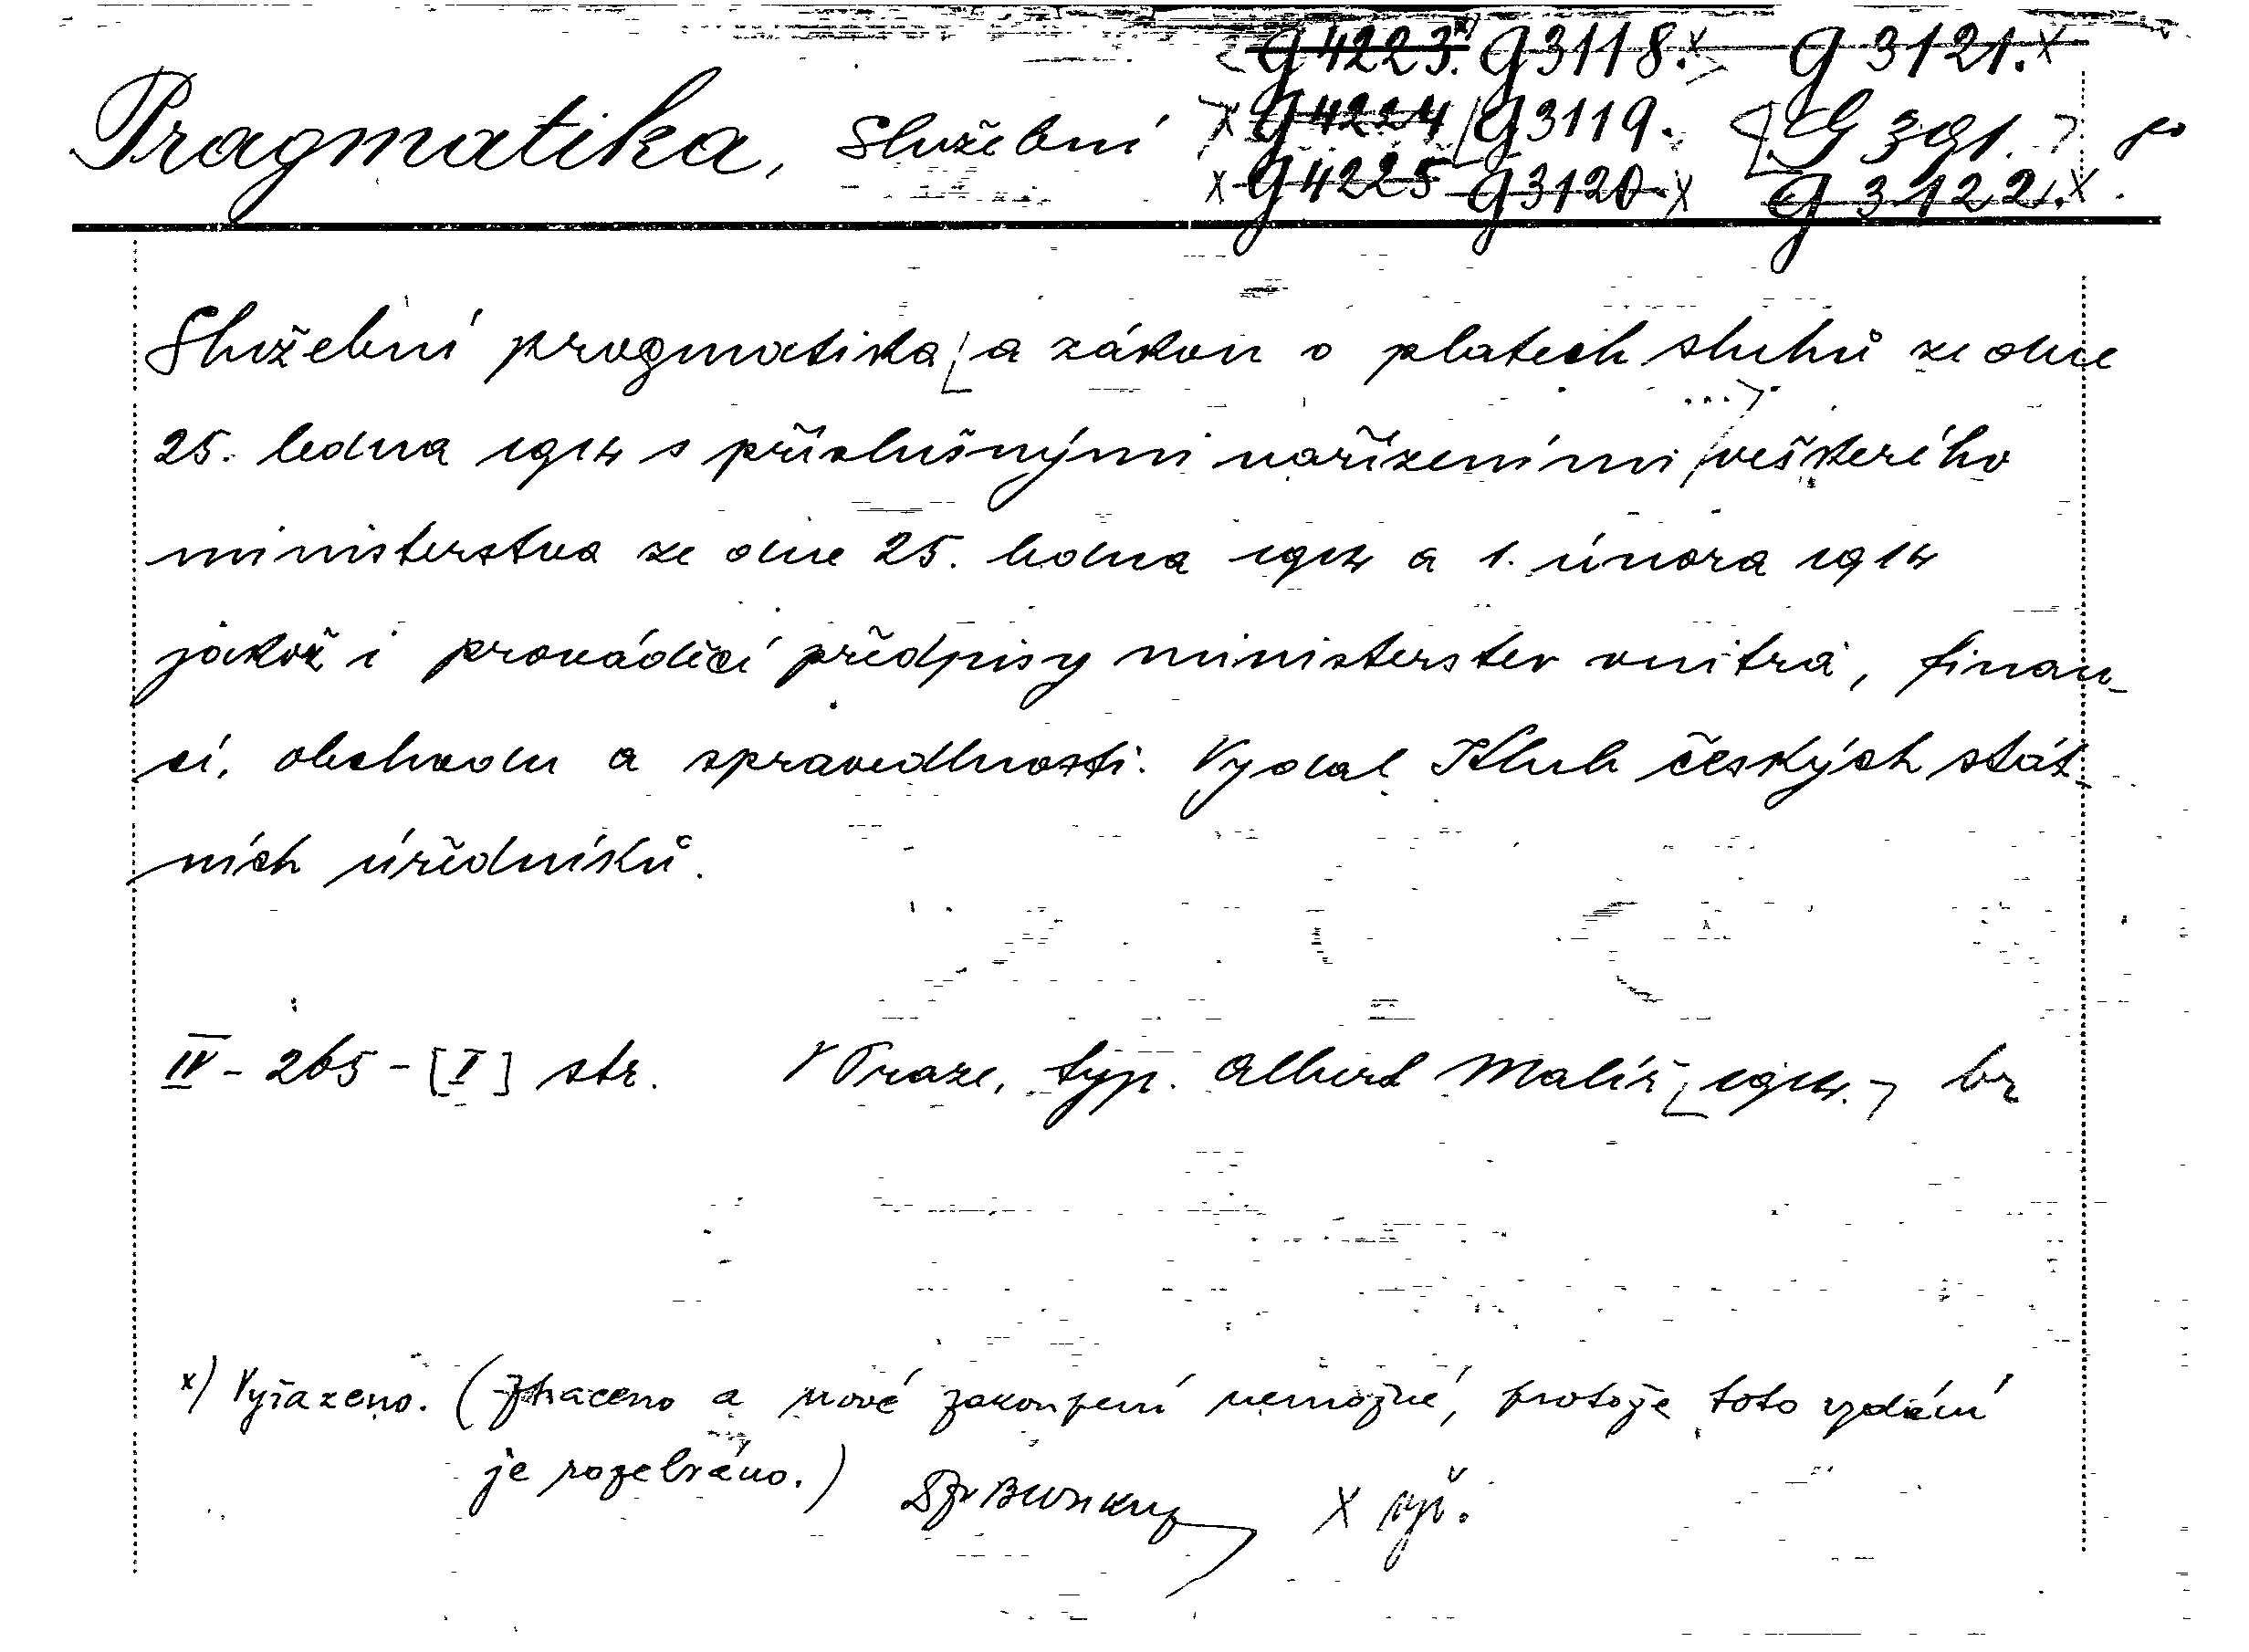 Pragmatika, Služební
G 4223.x) G 3118.x G 3121.x
x G 4224 G 3119. G 391.
x G 4225 G 3120.x G 3122.x.
Služební pragmatika [a zákon o platech sluhů ze dne
25. ledna 1914 s příslušnými nařízeními veškerého
ministerstva ze dne 25. ledna 1914 a 1. února 1914
jakož i prováděcí předpisy ministerstev vnitra, finan-
cí, obchodu a spravedlnosti. Vydal Klub českých stát-
ních úředníků.
IV - 265 - [I] str. V Praze, typ. Albert Malíř [1914.] br
x) Vyřazeno. (Ztraceno a nové zakoupení nemožné, protože toto vydání
je rozebráno.) X vyř.